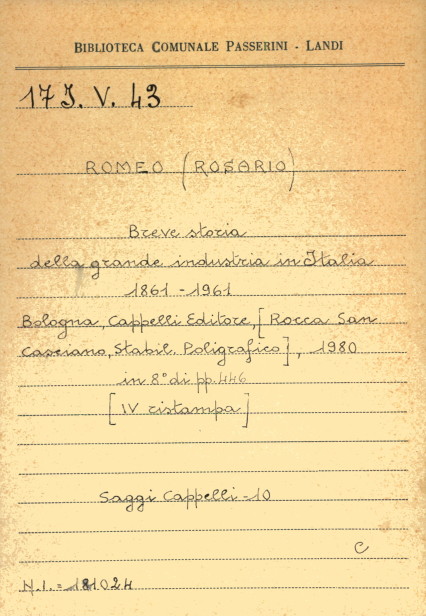 BIBLIOTECA COMUNALE PASSERINI - LANDI
17 J. V. 43
ROMEO (ROSARIO)
Breve storia
della grande industria in Italia
1861 - 1961
Bologna, Cappelli Editore, [Rocca San
Casciano, Stabil. Poligrafico], 1980
in 8° di pp. 446
[IV ristampa]
Saggi Cappelli - 10
C
N.I. = 181024